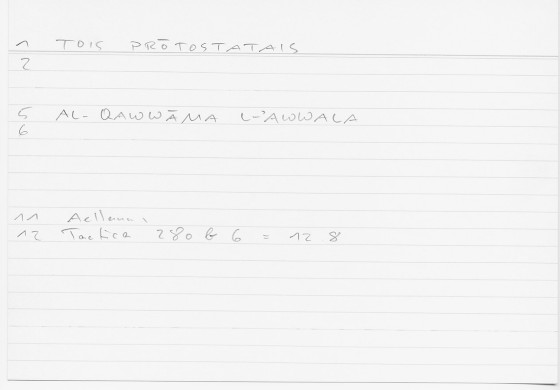 1 TOIS PRŌTOSTATAIS
2
5 AL-QAWWĀMA L-ʾAWWALA
6
11 Aelianus,
12 Tactica 280 b 6 = 12 8